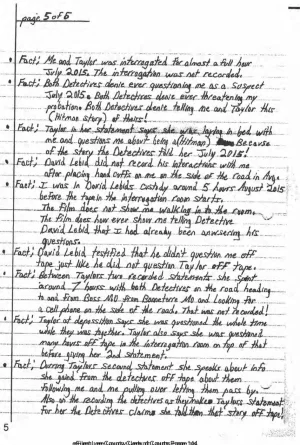 page 5 of 6
• Fact; Me and Taylor was interrogated for almost a full hour
July 2015. The interrogation was not recorded.
• Fact; Both Detectives denie ever questioning me as a suspect
July 2015. Both Detectives denie ever threatening my
probation. Both Detectives denie telling me and Taylor this
(Hitman story) of theirs!
• Fact; Taylor in her statement says she was laying in bed with
me and questions me about being a (Hitman) Because
of the story the Detectives told her July 2015!
• Fact; David Lebid did not record his interactions with me
after placing hand cuffs on me on the side of the road in Aug.
• Fact; I was in David Lebids custody around 5 hours August 2015
before the tape in the interrogation room starts.
The Film does not show me walking in to the room.
The Film does how ever show me telling Detective
David Lebid that I had already been anwsering his
questions.
• Fact; David Lebid testified that he didn't question me off
tape just like he did not question Taylor off tape.
• Fact; Between Taylors two recorded statements she spent
around 7 hours with both Detectives on the road heading
to and from Boss MO from Bonneterre MO and Looking for
a cell phone on the side of the road. That was not recorded!
• Fact; Taylor at deposition says she was questioned the whole time
while they was together. Taylor also says she was questioned
many hours off tape in the interrogation room on top of that
before giving her 2nd statement.
• Fact; Durring Taylors second statement she speaks about info
she gained from the detectives off tape about them
following me and me pulling over letting them pass by.
Also in the recording the detectives as they Taylors Statement
For her the Detectives claims she told them that story off tape!
5